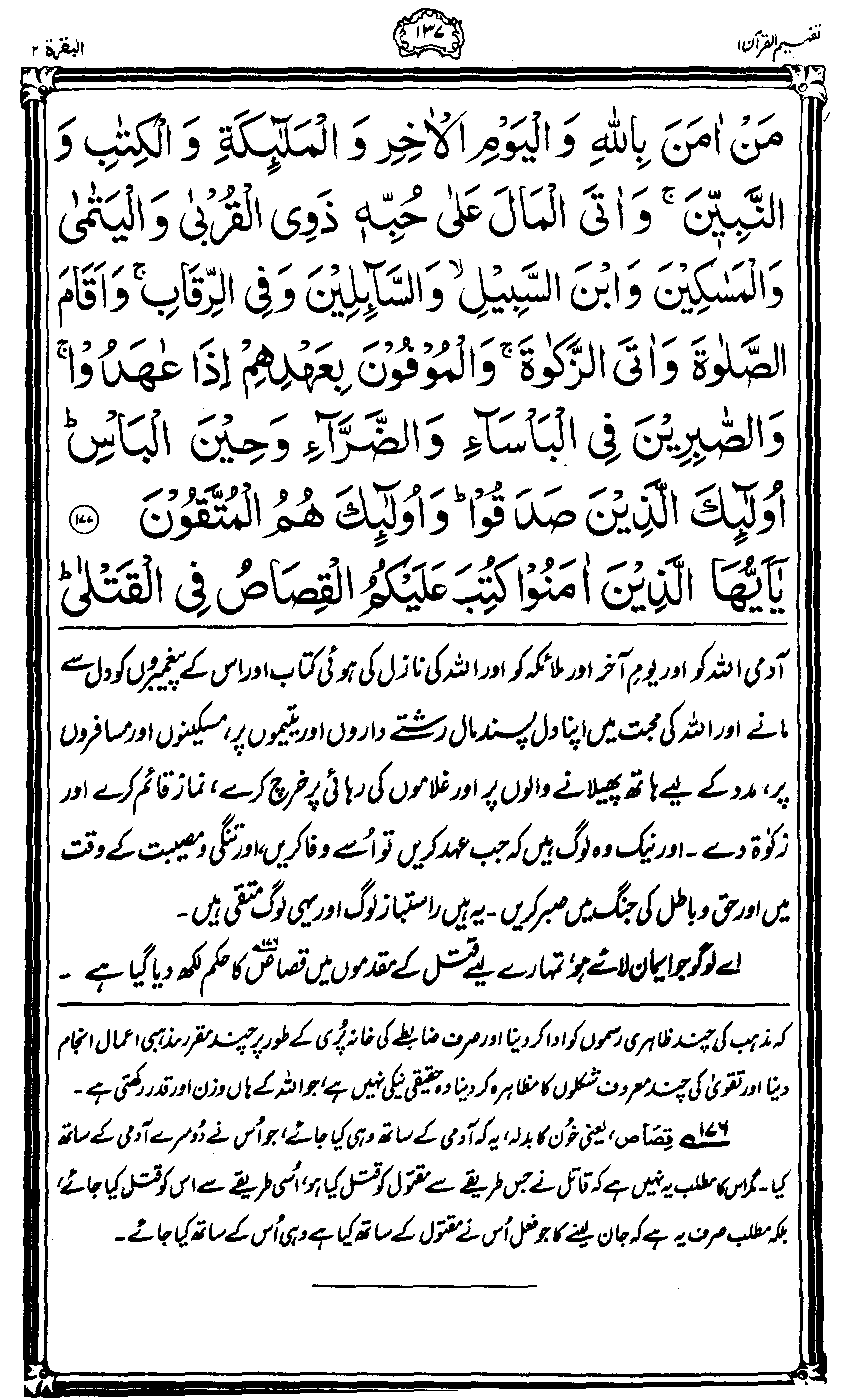 تفہیم القرآن۱
۱۳۷
البقرۃ ۲
مَنْ اٰمَنَ بِاللّٰهِ وَ الْیَوْمِ الْاٰخِرِ وَ الْمَلٰٓئِكَةِ وَ الْكِتٰبِ وَ
النَّبِیّٖنَ ۚ وَ اٰتَی الْمَالَ عَلٰی حُبِّهٖ ذَوِی الْقُرْبٰی وَ الْیَتٰمٰی
وَالْمَسٰكِیْنَ وَ ابْنَ السَّبِیْلِ ۙ وَالسَّآئِلِیْنَ وَ فِی الرِّقَابِ ۚ وَ اَقَامَ
الصَّلٰوةَ وَ اٰتَی الزَّكٰوةَ ۚ وَالْمُوْفُوْنَ بِعَهْدِهِمْ اِذَا عٰهَدُوْا ۚ
وَالصّٰبِرِیْنَ فِی الْبَاْسَآءِ وَالضَّرَّآءِ وَحِیْنَ الْبَاْسِ ؕ
اُولٰٓئِكَ الَّذِیْنَ صَدَقُوْا ؕ وَ اُولٰٓئِكَ هُمُ الْمُتَّقُوْنَ ﴿۱۷۷﴾
یٰۤاَیُّهَا الَّذِیْنَ اٰمَنُوْا كُتِبَ عَلَیْكُمُ الْقِصَاصُ فِی الْقَتْلٰی ؕ
آدمی اللہ کو اور یومِ آخر اور ملائکہ کو اور اللہ کی نازل کی ہوئی کتاب اور اس کے پیغمبروں کو دل سے
مانے اور اللہ کی محبت میں اپنا دل پسند مال رشتے داروں اور یتیموں پر، مسکینوں اور مسافروں
پر، مدد کے لیے ہاتھ پھیلانے والوں پر اور غلاموں کی رہائی پر خرچ کرے، نماز قائم کرے اور
زکوٰۃ دے۔ اور نیک وہ لوگ ہیں کہ جب عہد کریں تو اُسے وفا کریں، اور تنگی و مصیبت کے وقت
میں اور حق و باطل کی جنگ میں صبر کریں۔ یہ ہیں راستباز لوگ اور یہی لوگ متقی ہیں۔
اے لوگو جو ایمان لائے ہو، تمہارے لیے قتل کے مقدموں میں قصاص۱۷۶ کا حکم لکھ دیا گیا ہے۔
کہ مذہب کی چند ظاہری رسموں کو ادا کر دینا اور صرف ضابطے کی خانہ پُری کے طور پر چند مقرر مذہبی اعمال انجام
دینا اور تقویٰ کی چند معروف شکلوں کا مظاہرہ کر دینا وہ حقیقی نیکی نہیں ہے، جو اللہ کے ہاں وزن اور قدر رکھتی ہے۔
۱۷۶ قِصَاص، یعنی خُون کا بدلہ، یہ کہ آدمی کے ساتھ وہی کیا جائے، جو اُس نے دُوسرے آدمی کے ساتھ
کیا۔ مگر اس کا مطلب یہ نہیں ہے کہ قاتل نے جس طریقے سے مقتول کو قتل کیا ہو، اُسی طریقے سے اس کو قتل کیا جائے،
بلکہ مطلب صرف یہ ہے کہ جان لینے کا جو فعل اُس نے مقتول کے ساتھ کیا ہے وہی اُس کے ساتھ کیا جائے۔